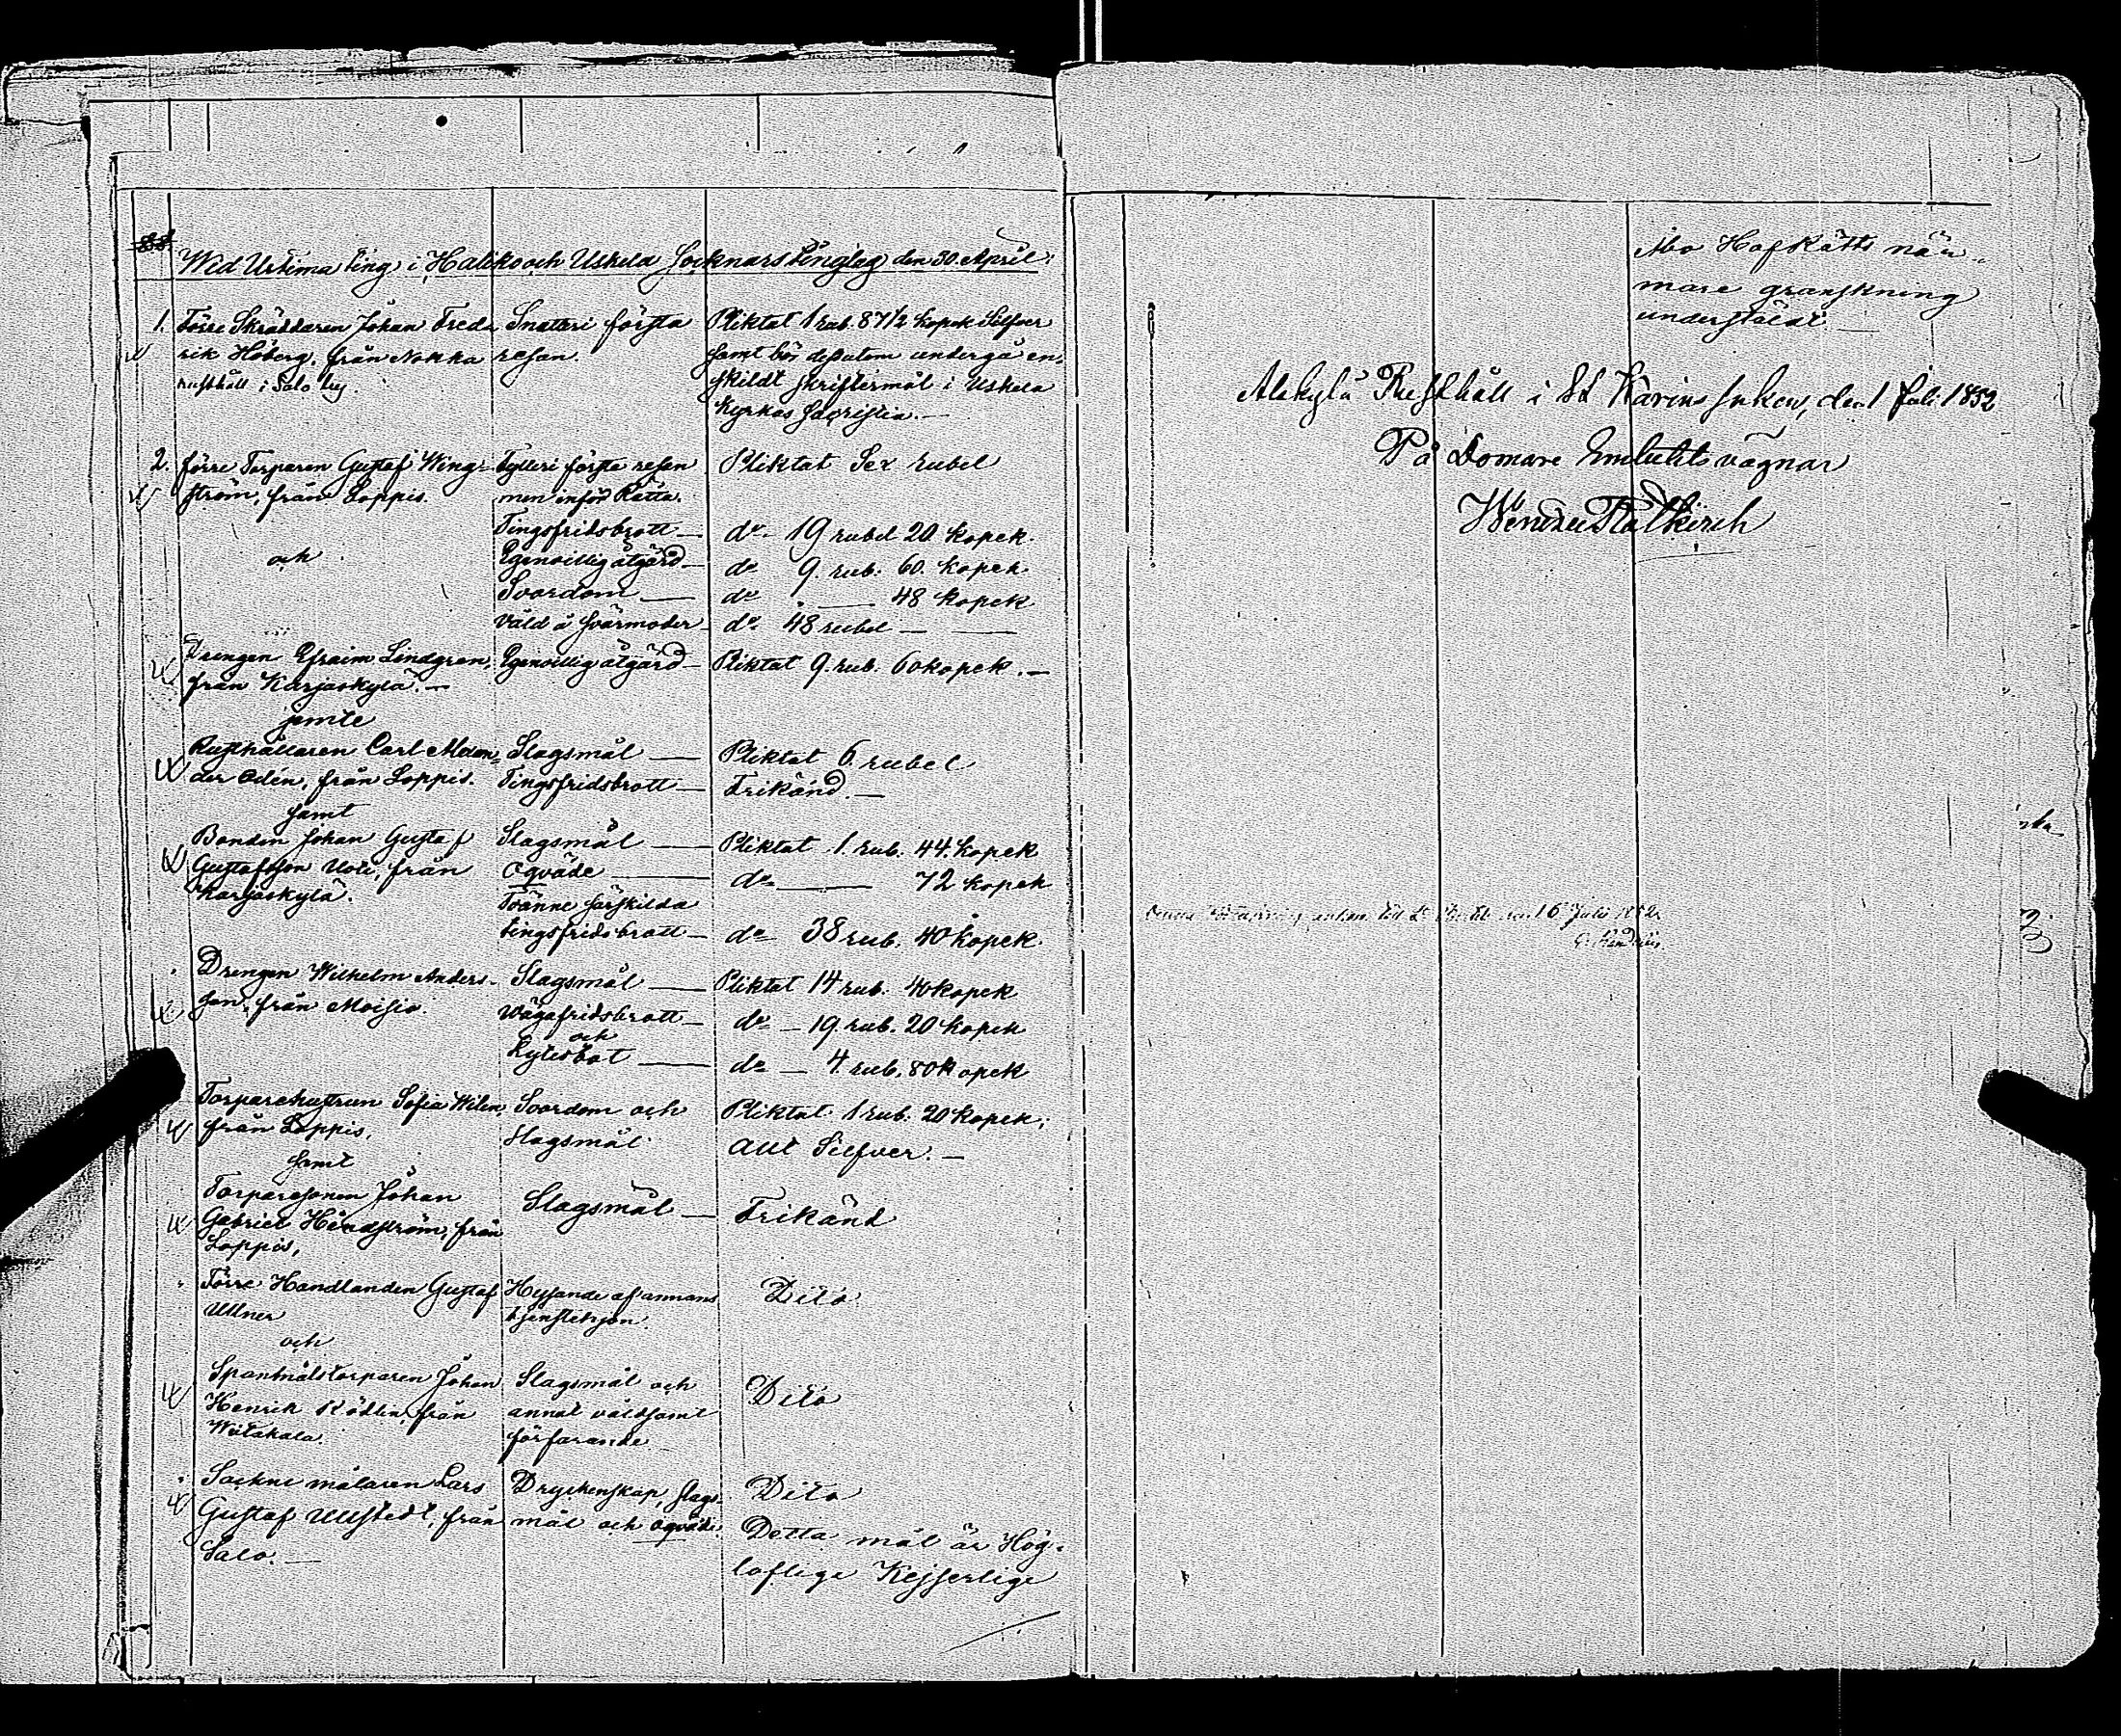 Wid Urtima ting i Haliko och Uskela Socknars tingslag den 30. April.
1. Förre Skräddaren Johan Fred- Snatteri första Pliktat 1 rub. 87 1/2 kopek Silfver
rik Höberg, från Nokka resan. samt bör dessutom undergå en-
rusthåll i Salo by. skildt skriftermål i Uskela
Kyrkas Sacristia.—
2. förre Torparen Gustaf Wing- Fylleri första resan Pliktat Sex rubel
ström, från Loppis. men inför Rätta.
Tingsfridsbrott — do 19 rubel 20 kopek.
och Egenvillig åtgärd — do 9. rub. 60. kopek
Svordom — do — 48 kopek
Våld å Svärmoder — do 48 rubel —
Drengen Efraim Lindgren, Egenvillig åtgärd — Pliktat 9. rub. 60 kopek.—
från Karjaskylä.—
jemte
Rusthållaren Carl Alexan- Slagsmål — Pliktat 6. rubel
der Odén, från Loppis. Tingsfridsbrott — Frikänd.—
samt
Bonden Johan Gustaf Slagsmål — Pliktat 1. rub. 44. kopek
Gustafsson Uoti, från Oqväde — do — 72 kopek
Karjaskylä. Tvänne särskilda
tingsfridsbrott — do 38 rub. 40 kopek.
Drengen Wilhelm Anders- Slagsmål — Pliktat 14 rub. 40 kopek
son, från Moisio. Wägafridsbrott — do — 19. rub. 20 kopek
och
do — 4. rub. 80 kopek
Torparehustrun Sofia Wilen, Svordom och Pliktat 1 rub. 20 kopek,
från Loppis, Slagsmål allt Silfver.—
samt
Torparesonen Johan Slagsmål — Frikänd
Gabriel, från
Loppis,
Förre Handlanden Gustaf Hysande af annans Dito
Ullner tjenstehjon.
och
Johan Slagsmål och Dito
Henrik Rödlin, från annat våldsamt
förfarande
Sockne målaren Lars Dryckenskap, slags- Dito
Gustaf Ullstedt, från mål och oqväde. Detta mål är Hög-
Salo.— loflige Kejserlige
Åbo HofRätts när-
mare granskning
understäldt —
Alakylä Rusthåll i St Karins Soken, den 1 Juli 1852
På Domare Embetets vägnar
den 16 Juli 1852.